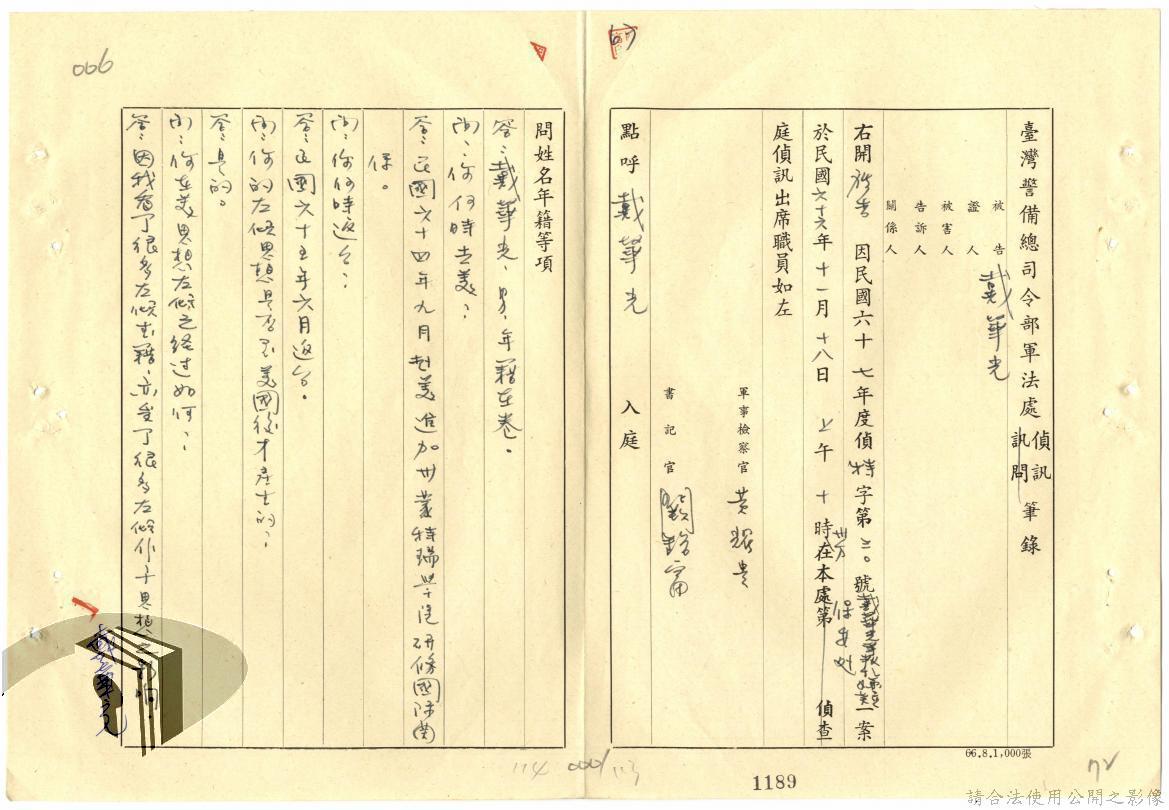 臺灣警備總司令部軍法處偵訊訊問筆錄
被告 戴華光
證人
被害人
告訴人
關係人
右開被告因民國六十七年度偵特字第三〇號戴華光等叛亂嫌疑一案
於民國六十六年十一月十八日上午十時卅分在本處第保安處偵查
庭偵訊出席職員如左
軍事檢察官 黃
書記官
點呼戴華光入庭
問姓名年籍等項
答：戴華光、男、年籍在卷。
問：你何時去美？
答：民國六十四年九月赴美進加州蒙特瑞學院研修國際關
係。
問：你何時返台？
答：民國六十五年六月返台。
問：你的左傾思想是否到美國後才產生的？
答：是的。
問：你在美思想左傾之經過如何？
答：因我看了很多左傾書籍，亦受了很多左傾份子思想之影响。
戴華光
66.8.1,000張
006
114
000/113
1189
72
請合法使用公開之影像